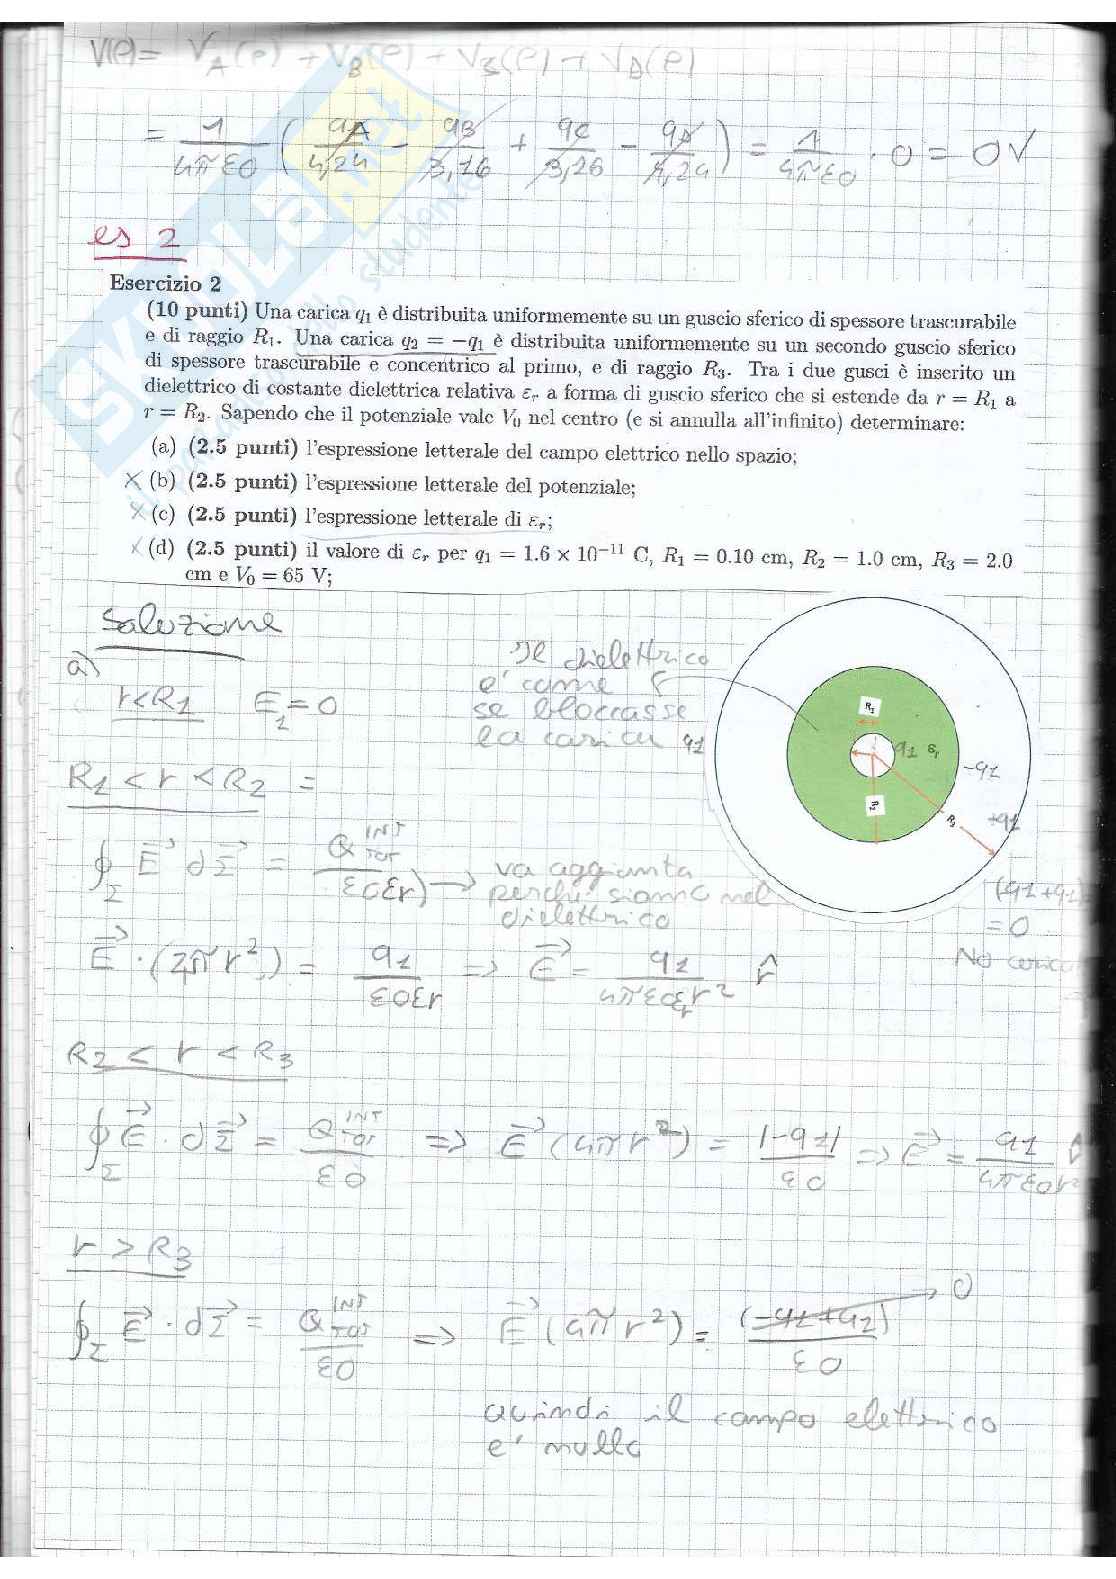 V(P) = V_A(P) + V_B(P) + V_C(P) + V_D(P)
= 1/4πε0 ( qA/4,24 - qB/3,16 + qC/3,16 - qD/4,24 ) = 1/4πε0 · 0 = 0V
es 2
Esercizio 2
(10 punti) Una carica q₁ è distribuita uniformemente su un guscio sferico di spessore trascurabile
e di raggio R₁. Una carica q₂ = −q₁ è distribuita uniformemente su un secondo guscio sferico
di spessore trascurabile e concentrico al primo, e di raggio R₃. Tra i due gusci è inserito un
dielettrico di costante dielettrica relativa εᵣ a forma di guscio sferico che si estende da r = R₁ a
r = R₂. Sapendo che il potenziale vale V₀ nel centro (e si annulla all'infinito) determinare:
(a) (2.5 punti) l'espressione letterale del campo elettrico nello spazio;
X (b) (2.5 punti) l'espressione letterale del potenziale;
X (c) (2.5 punti) l'espressione letterale di εᵣ;
X (d) (2.5 punti) il valore di εᵣ per q₁ = 1.6 × 10⁻¹¹ C, R₁ = 0.10 cm, R₂ = 1.0 cm, R₃ = 2.0
cm e V₀ = 65 V;
Soluzione
a)
r<R1 E1=0
Il dielettrico
e' come
se bloccasse
la carica q1
R1
q1 εr
-q1
R2
R3
+q1
(-q1+q1)
= 0
No carica
R1 < r < R2 =
∮Σ E⃗ dΣ⃗ = Q INT TOT / ε0εr → va aggiunta
perchè siamo nel
dielettrico
E⃗ · (4πr²) = q1/ε0εr => E⃗ = q1/4πε0εr r² r̂
R2 < r < R3
∮Σ E⃗ · dΣ⃗ = Q INT TOT / ε0 => E⃗ (4πr²) = |-q1|/ε0 => E⃗ = q1/4πε0r² r̂
r > R3
∮Σ E⃗ · dΣ⃗ = Q INT TOT / ε0 => E⃗ (4πr²) = (-q1+q1)/ε0 → 0
quindi il campo elettrico
e' nullo
SKUOLA.net